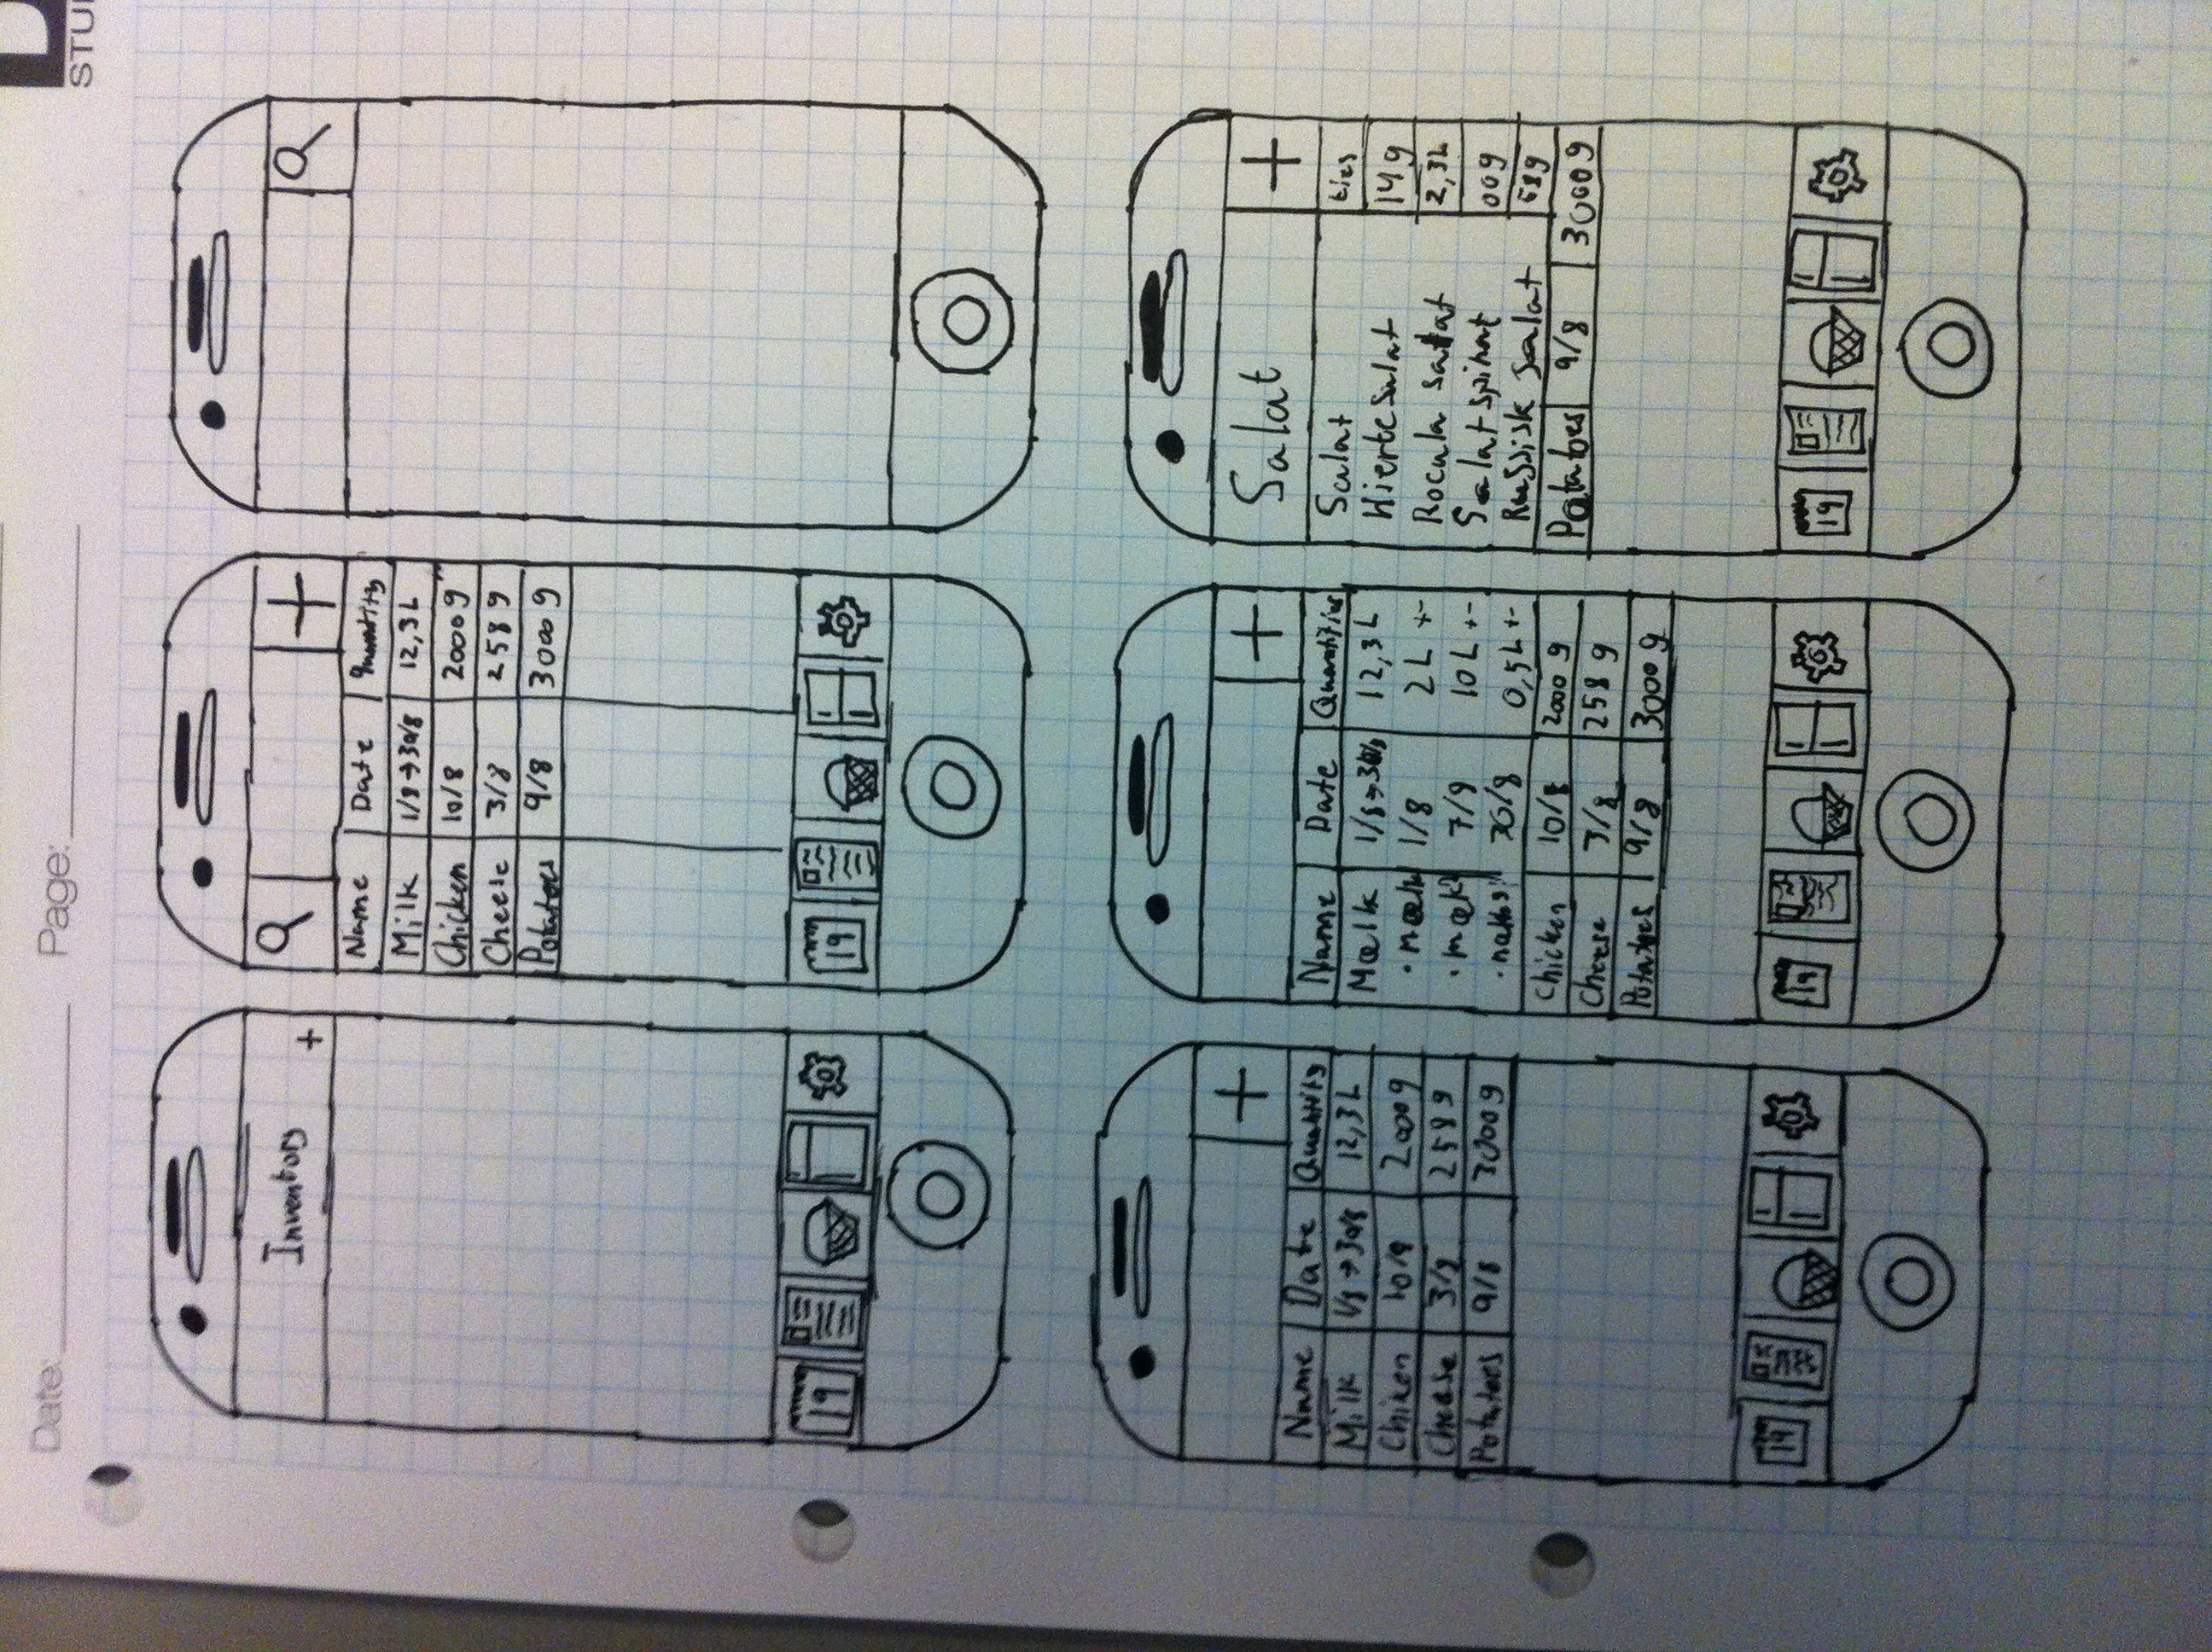 Date: Page:
STU
Inventory +
+
Name Date Quantity
Milk 1/8→30/8 12,3L
Chicken 10/8 2000g
Cheese 3/8 258g
Potatoes 9/8 3000g
19
19
+
Name Date Quantity
Milk 1/8→30/8 12,3L
Chiken 10/8 2000g
Cheese 3/8 258g
Potatoes 9/8 3000g
19
+
Name Date Quantities
Mælk 1/8→30/8 12,3L
· mælk 1/8 2L +-
· mælk 7/8 10L +-
30/8 0,5L +-
Chicken 10/8 2000g
Cheese 3/8 258g
Potatoes 9/8 3000g
19
Salat +
Salat ties
Hjerte salat 14g
Rocula salat 2,3L
Salat spinat 00g
Russisk salat 58g
Potatoes 9/8 3000g
19